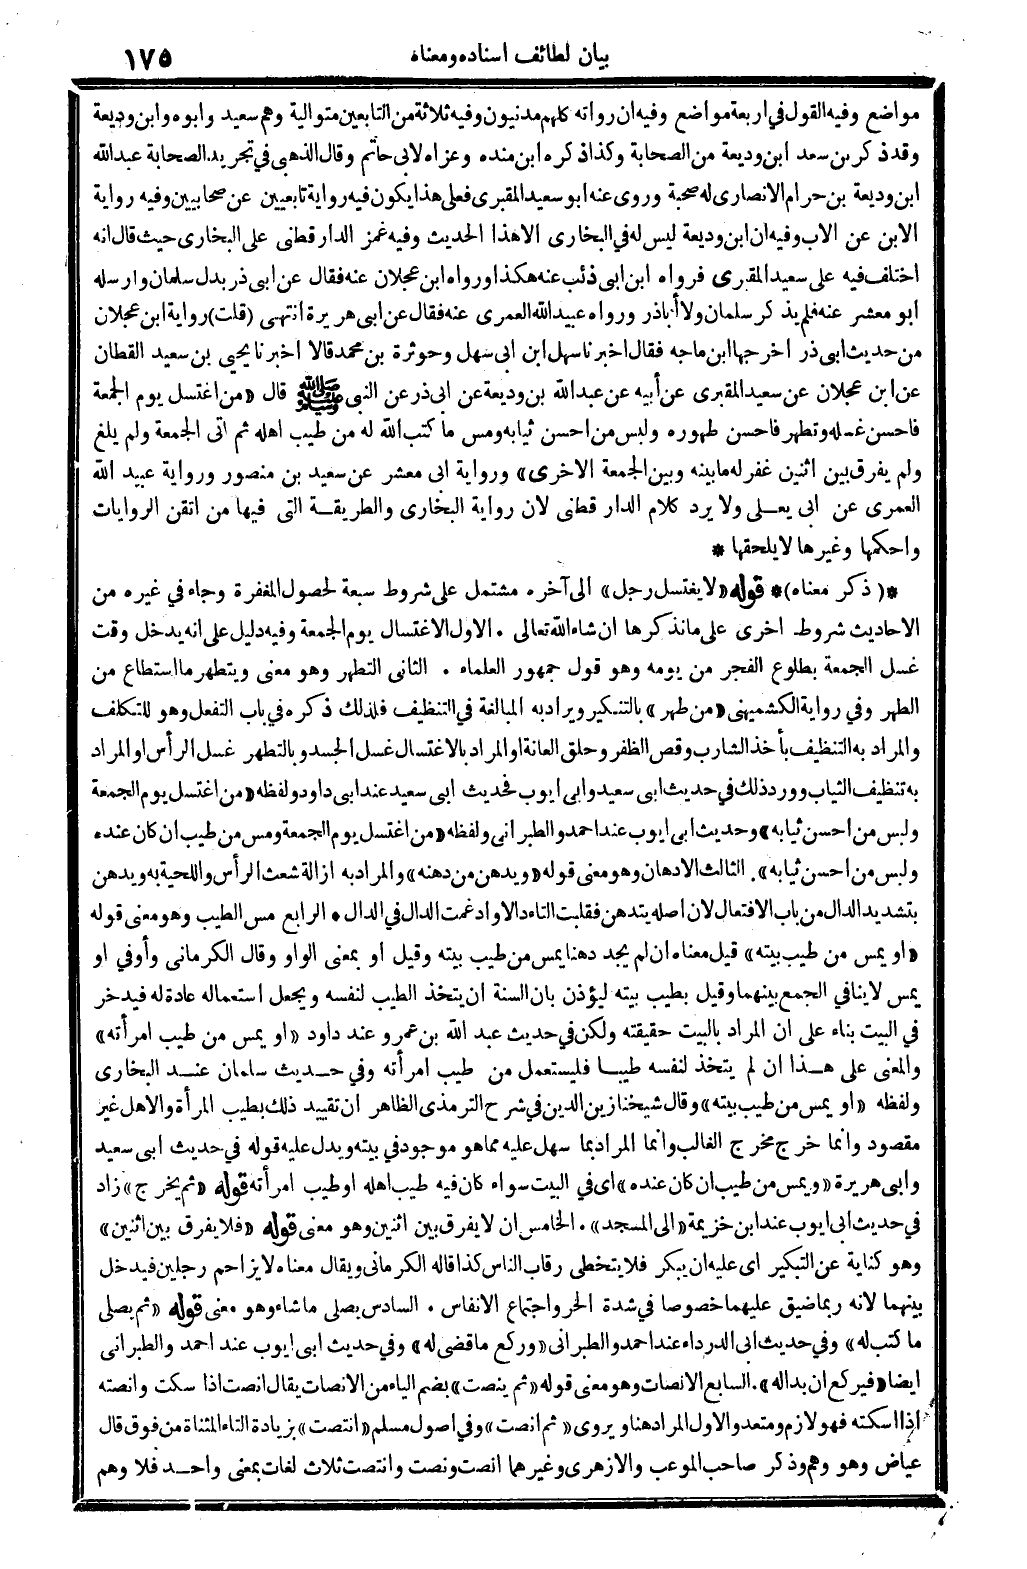 بيان لطائف اسناده ومعناه
١٧٥
مواضع وفيه القول في اربعة مواضع وفيه ان رواته كلهم مدنيون وفيه ثلاثة من التابعين متوالية وهم سعيد وابوه وابن وديعة
وقد ذكر بن سعد ابن وديعة من الصحابة وكذا ذكره ابن منده وعزاه لابى حاتم وقال الذهبى في تجريد الصحابة عبد الله
ابن وديعة بن حرام الانصارى له صحبة وروى عنه ابو سعيد المقبرى فعلى هذا يكون فيه رواية تابعيين عن صحابيين وفيه رواية
الابن عن الاب وفيه ان ابن وديعة ليس له في البخارى الا هذا الحديث وفيه غمز الدار قطنى على البخارى حيث قال انه
اختلف فيه على سعيد المقبرى فرواه ابن ابى ذئب عنه هكذا ورواه ابن عجلان عنه فقال عن ابى ذر بدل سلمان وارسله
ابو معشر عنه فلم يذكر سلمان ولا أباذر ورواه عبيد الله العمرى عنه فقال عن ابى هريرة انتهى (قلت) رواية ابن عجلان
من حديث ابى ذر اخرجها ابن ماجه فقال اخبرنا سهل ابن ابى سهل وحوثرة بن محمد قالا اخبرنا يحيى بن سعيد القطان
عن ابن عجلان عن سعيد المقبرى عن أبيه عن عبد الله بن وديعة عن ابى ذر عن النبى ﷺ قال «من اغتسل يوم الجمعة
فاحسن غسله وتطهر فاحسن طهوره ولبس من احسن ثيابه ومس ما كتب الله له من طيب اهله ثم اتى الجمعة ولم يلغ
ولم يفرق بين اثنين غفر له ما بينه وبين الجمعة الاخرى» ورواية ابى معشر عن سعيد بن منصور ورواية عبيد الله
العمرى عن ابى يعلى ولا يرد كلام الدار قطنى لان رواية البخارى والطريقة التى فيها من اتقن الروايات
واحكمها وغيرها لا يلحقها *
*(ذكر معناه)* قوله «لا يغتسل رجل» الى آخره مشتمل على شروط سبعة لحصول المغفرة وجاء في غيره من
الاحاديث شروط اخرى على ما نذكرها ان شاء الله تعالى . الاول الاغتسال يوم الجمعة وفيه دليل على انه يدخل وقت
غسل الجمعة بطلوع الفجر من يومه وهو قول جمهور العلماء . الثانى التطهر وهو معنى ويتطهر ما استطاع من
الطهر وفي رواية الكشميهنى «من طهر» بالتنكير ويراد به المبالغة في التنظيف فلذلك ذكره في باب التفعل وهو للتكلف
والمراد به التنظيف بأخذ الشارب وقص الظفر وحلق العانة او المراد بالاغتسال غسل الجسد وبالتطهر غسل الرأس او المراد
به تنظيف الثياب وورد ذلك في حديث ابى سعيد وابى ايوب فحديث ابى سعيد عند ابى داود ولفظه «من اغتسل يوم الجمعة
ولبس من احسن ثيابه» وحديث ابى ايوب عند احمد والطبرانى ولفظه «من اغتسل يوم الجمعة ومس من طيب ان كان عنده
ولبس من احسن ثيابه» . الثالث الادهان وهو معنى قوله «ويدهن من دهنه» والمراد به ازالة شعث الرأس واللحية به ويدهن
بتشديد الدال من باب الافتعال لان اصله يتدهن فقلبت التاء دالا وادغمت الدال في الدال * الرابع مس الطيب وهو معنى قوله
«او يمس من طيب بيته» قيل معناه ان لم يجد دهنا يمس من طيب بيته وقيل او بمعنى الواو وقال الكرمانى وأو في او
يمس لا ينافي الجمع بينهما وقيل بطيب بيته ليؤذن بان السنة ان يتخذ الطيب لنفسه ويجعل استعماله عادة له فيدخر
في البيت بناء على ان المراد بالبيت حقيقته ولكن في حديث عبد الله بن عمرو عند داود «او يمس من طيب امرأته»
والمعنى على هذا ان لم يتخذ لنفسه طيبا فليستعمل من طيب امرأته وفي حديث سلمان عند البخارى
ولفظه «او يمس من طيب بيته» وقال شيخنا زين الدين في شرح الترمذى الظاهر ان تقييد ذلك بطيب المرأة والاهل غير
مقصود وانما خرج مخرج الغالب وانما المراد بما سهل عليه مما هو موجود في بيته ويدل عليه قوله في حديث ابى سعيد
وابى هريرة «ويمس من طيب ان كان عنده» اى في البيت سواء كان فيه طيب اهله او طيب امرأته قوله «ثم يخرج» زاد
في حديث ابى ايوب عند ابن خزيمة «الى المسجد» . الخامس ان لا يفرق بين اثنين وهو معنى قوله «فلا يفرق بين اثنين»
وهو كناية عن التبكير اى عليه ان يبكر فلا يتخطى رقاب الناس كذا قاله الكرمانى ويقال معناه لا يزاحم رجلين فيدخل
بينهما لانه ربما ضيق عليهما خصوصا في شدة الحر واجتماع الانفاس . السادس يصلى ما شاء وهو معنى قوله «ثم يصلى
ما كتب له» وفي حديث ابى الدرداء عند احمد والطبرانى «وركع ما قضى له» وفي حديث ابى ايوب عند احمد والطبرانى
ايضا «فيركع ان بداله» . السابع الانصات وهو معنى قوله «ثم ينصت» بضم الياء من الانصات يقال انصت اذا سكت وانصته
اذا اسكته فهو لازم ومتعد والاول المراد هنا ويروى «ثم انصت» وفي اصول مسلم «انتصت» بزيادة التاء المثناة من فوق قال
عياض وهو وهم وذكر صاحب الموعب والازهرى وغيرهما انصت ونصت وانتصت ثلاث لغات بمعنى واحد فلا وهم